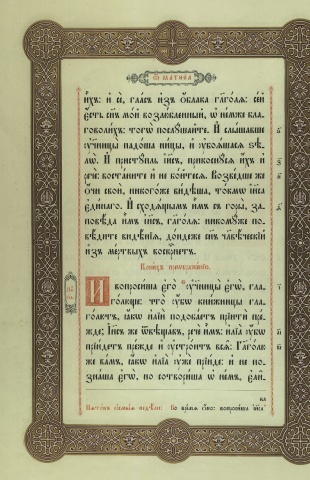 Ѿ МАТѲЕА
и҆̀хъ: и҆ сѐ, гла́съ и҆з̾ ѡ҆́блака гл҃го́лѧ: се́й
є҆́сть сн҃ъ мо́й возлю́бленный, ѡ҆ не́мже бл҃-
гoволи́хъ: тогѡ̀ послꙋ́шайте. И҆ слы́шавше
ᲂу҆чн҃цы̀ падо́ша ни́цы, и҆ ᲂу҆боѧ́шасѧ ѕѣ-
лѡ̀. И҆ пристꙋ́пль і҆и҃съ, прикоснꙋ́сѧ и҆́хъ и҆
речѐ: воста́ните и҆ не бо́йтесѧ. Возве́дше же
ѻ҆́чи своѝ, никого́же ви́дѣша, то́кмѡ і҆и҃са
є҆ди́наго. И҆ сходѧ́щымъ и҆̀мъ съ горы̀, за-
повѣ́да и҆̀мъ і҆и҃съ, гл҃го́лѧ: никомꙋ́же по-
вѣ́дите видѣ́нїѧ, до́ндеже сн҃ъ чл҃вѣ́ческїй
и҆з̾ ме́ртвыхъ воскре́снетъ.
Коне́цъ преѡбраже́нїю.
И҆ вопроси́ша є҆го̀ ᲂу҆чн҃цы̀ є҆гѡ̀, гла-
го́люще: что̀ ᲂу҆̀бо кни́жницы гла-
го́лютъ, ꙗ҆́кѡ и҆лїѝ подоба́етъ прїитѝ пре́-
ждє; І҆и҃съ же ѿвѣща́въ, речѐ и҆̀мъ: и҆лїа̀ ᲂу҆́бѡ
прїи́детъ пре́жде и҆ ᲂу҆стро́итъ всѧ̑: Гл҃го́лю
же ва́мъ, ꙗ҆́кѡ и҆лїа̀ ᲂу҆жѐ прїи́де: и҆ не по-
зна́ша є҆гѡ̀, но сотвори́ша ѡ҆ не́мъ, є҆ли̑-